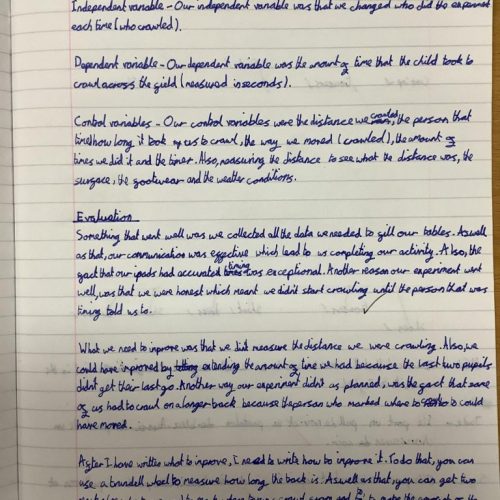 Independent variable - Our independent variable was that we changed who did the experiment
each time (who crawled).
Dependent variable - Our dependent variable was the amount of time that the child took to
crawl across the field (measured in seconds).
Control variables - Our control variables were the distance we crawled, the person that
timed how long it took us to crawl, the way we moved (crawled), the amount of
times we did it and the timer. Also, measuring the distance to see what the distance was, the
surface, the footwear and the weather conditions.
Evaluation
Something that went well was we collected all the data we needed to fill our tables. Aswell
as that, our communication was effective which lead to us completing our activity. Also, the
fact that our ipads had accurated timing was exceptional. Another reason our experiment went
well, was that we were honest which meant we didn't start crawling until the person that was
timing told us to.
What we need to inprove was that we didnt measure the distance we were crawling. Also, we
could have inproved by extending the amount of time we had because the last two pupils
didn't get their last go. Another way our experiment didn't as planned, was the fact that some
of us had to crawl on a longer track because the person who marked where to is could
have moved.
After I have written what to inprove, I need to write how to inprove it. To do that, you can
use a trundel wheel to measure how long the track is. Aswell as that, you can get two